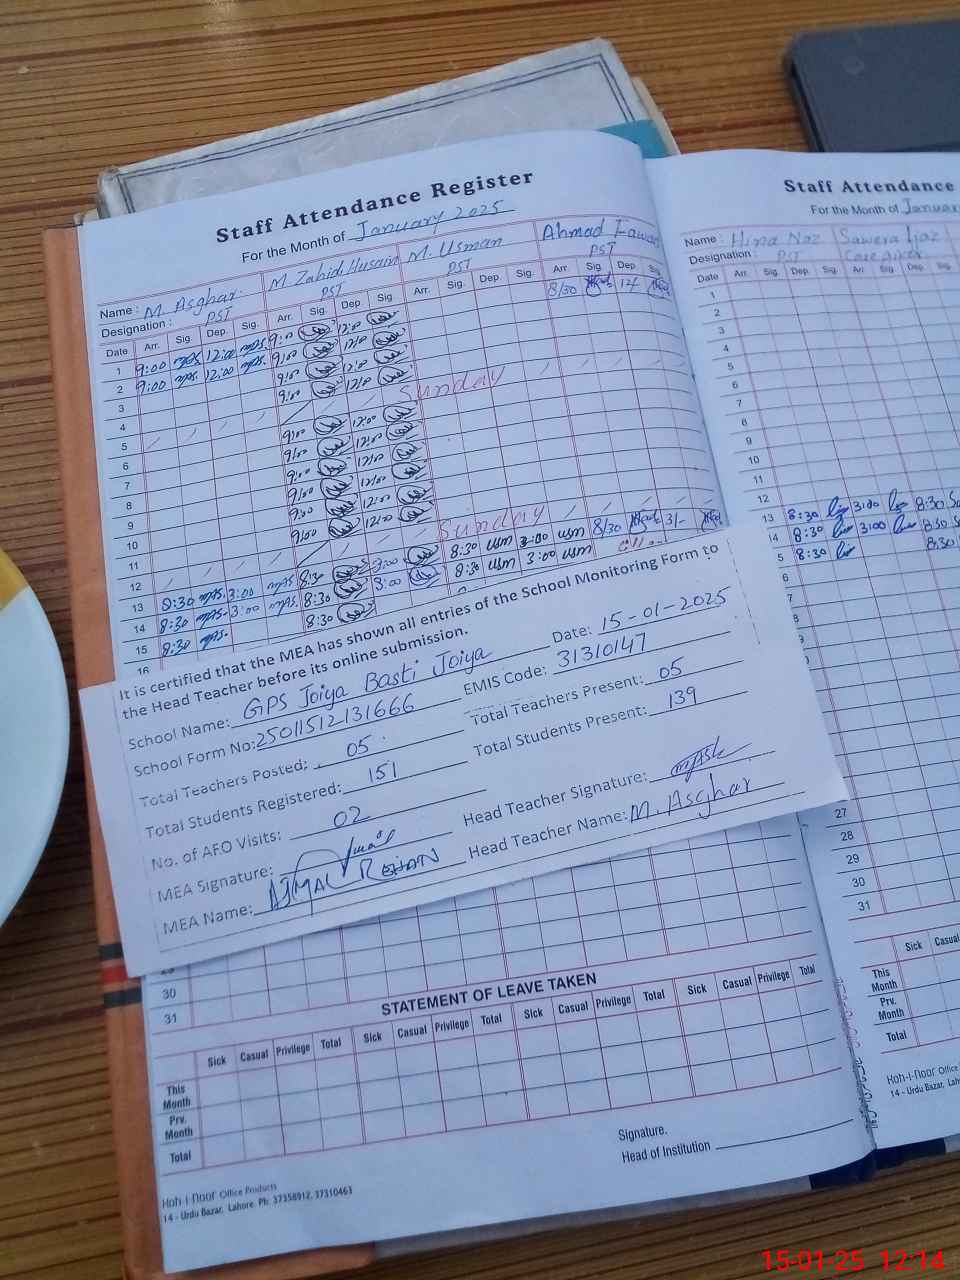 Staff Attendance Register
For the Month of January 2025
Name : M Asghar. M Zahid Husain M. Usman Ahmad Fawad
Designation : PST PST PST PST
Date Arr. Sig. Dep. Sig. Arr. Sig. Dep Sig. Arr. Sig. Dep. Sig. Arr. Sig. Dep Sig.
1 9:00 12:00 9:00 12:00 8/30 12/
2 9:00 12:00 9:00 12:00
3 9:00 12:00
4 9:00 12:00
5 Sunday
6 9:00 12:00
7 9:00 12:00
8 9:00 12:00
9 9:00 12:00
10 9:00 12:00
11 9:00 12:00
12 Sunday
13 8:30 3:00 8:30 3:00 8:30 usm 3:00 usm 8/30 3/-
14 8:30 3:00 8:30 3:00 8:30 usm 3:00 usm
15 8:30 8:30
16
It is certified that the MEA has shown all entries of the School Monitoring Form to
the Head Teacher before its online submission.
Date: 15-01-2025
School Name: GPS Joiya Basti Joiya
EMIS Code: 31310147
School Form No: 25011512131666
Total Teachers Present: 05
Total Teachers Posted: 05
Total Students Present: 139
Total Students Registered: 151
No. of AFO Visits: 02
Head Teacher Signature:
MEA Signature:
Head Teacher Name: M. Asghar
MEA Name: AJMAL REHAN
30
31
STATEMENT OF LEAVE TAKEN
Sick Casual Privilege Total Sick Casual Privilege Total Sick Casual Privilege Total Sick Casual Privilege Total
This
Month
Prv.
Month
Total
Signature.
Head of Institution
Koh-i-Noor Office Products
14 - Urdu Bazar, Lahore. Ph: 37358912, 37310463
Staff Attendance
For the Month of January
Name : Hina Naz Sawera Ijaz
Designation : PST Care giver
Date Arr. Sig. Dep. Sig. Arr. Sig. Dep. Sig.
1
2
3
4
5
6
7
8
9
10
11
12
13 8:30 3:00 8:30
14 8:30 3:00 8:30
5 8:30 8:30
6
7
8
9
27
28
29
30
31
Sick Casual
This
Month
Prv.
Month
Total
Koh-i-Noor Office
14 - Urdu Bazar, Lahore.
15-01-25 12:14